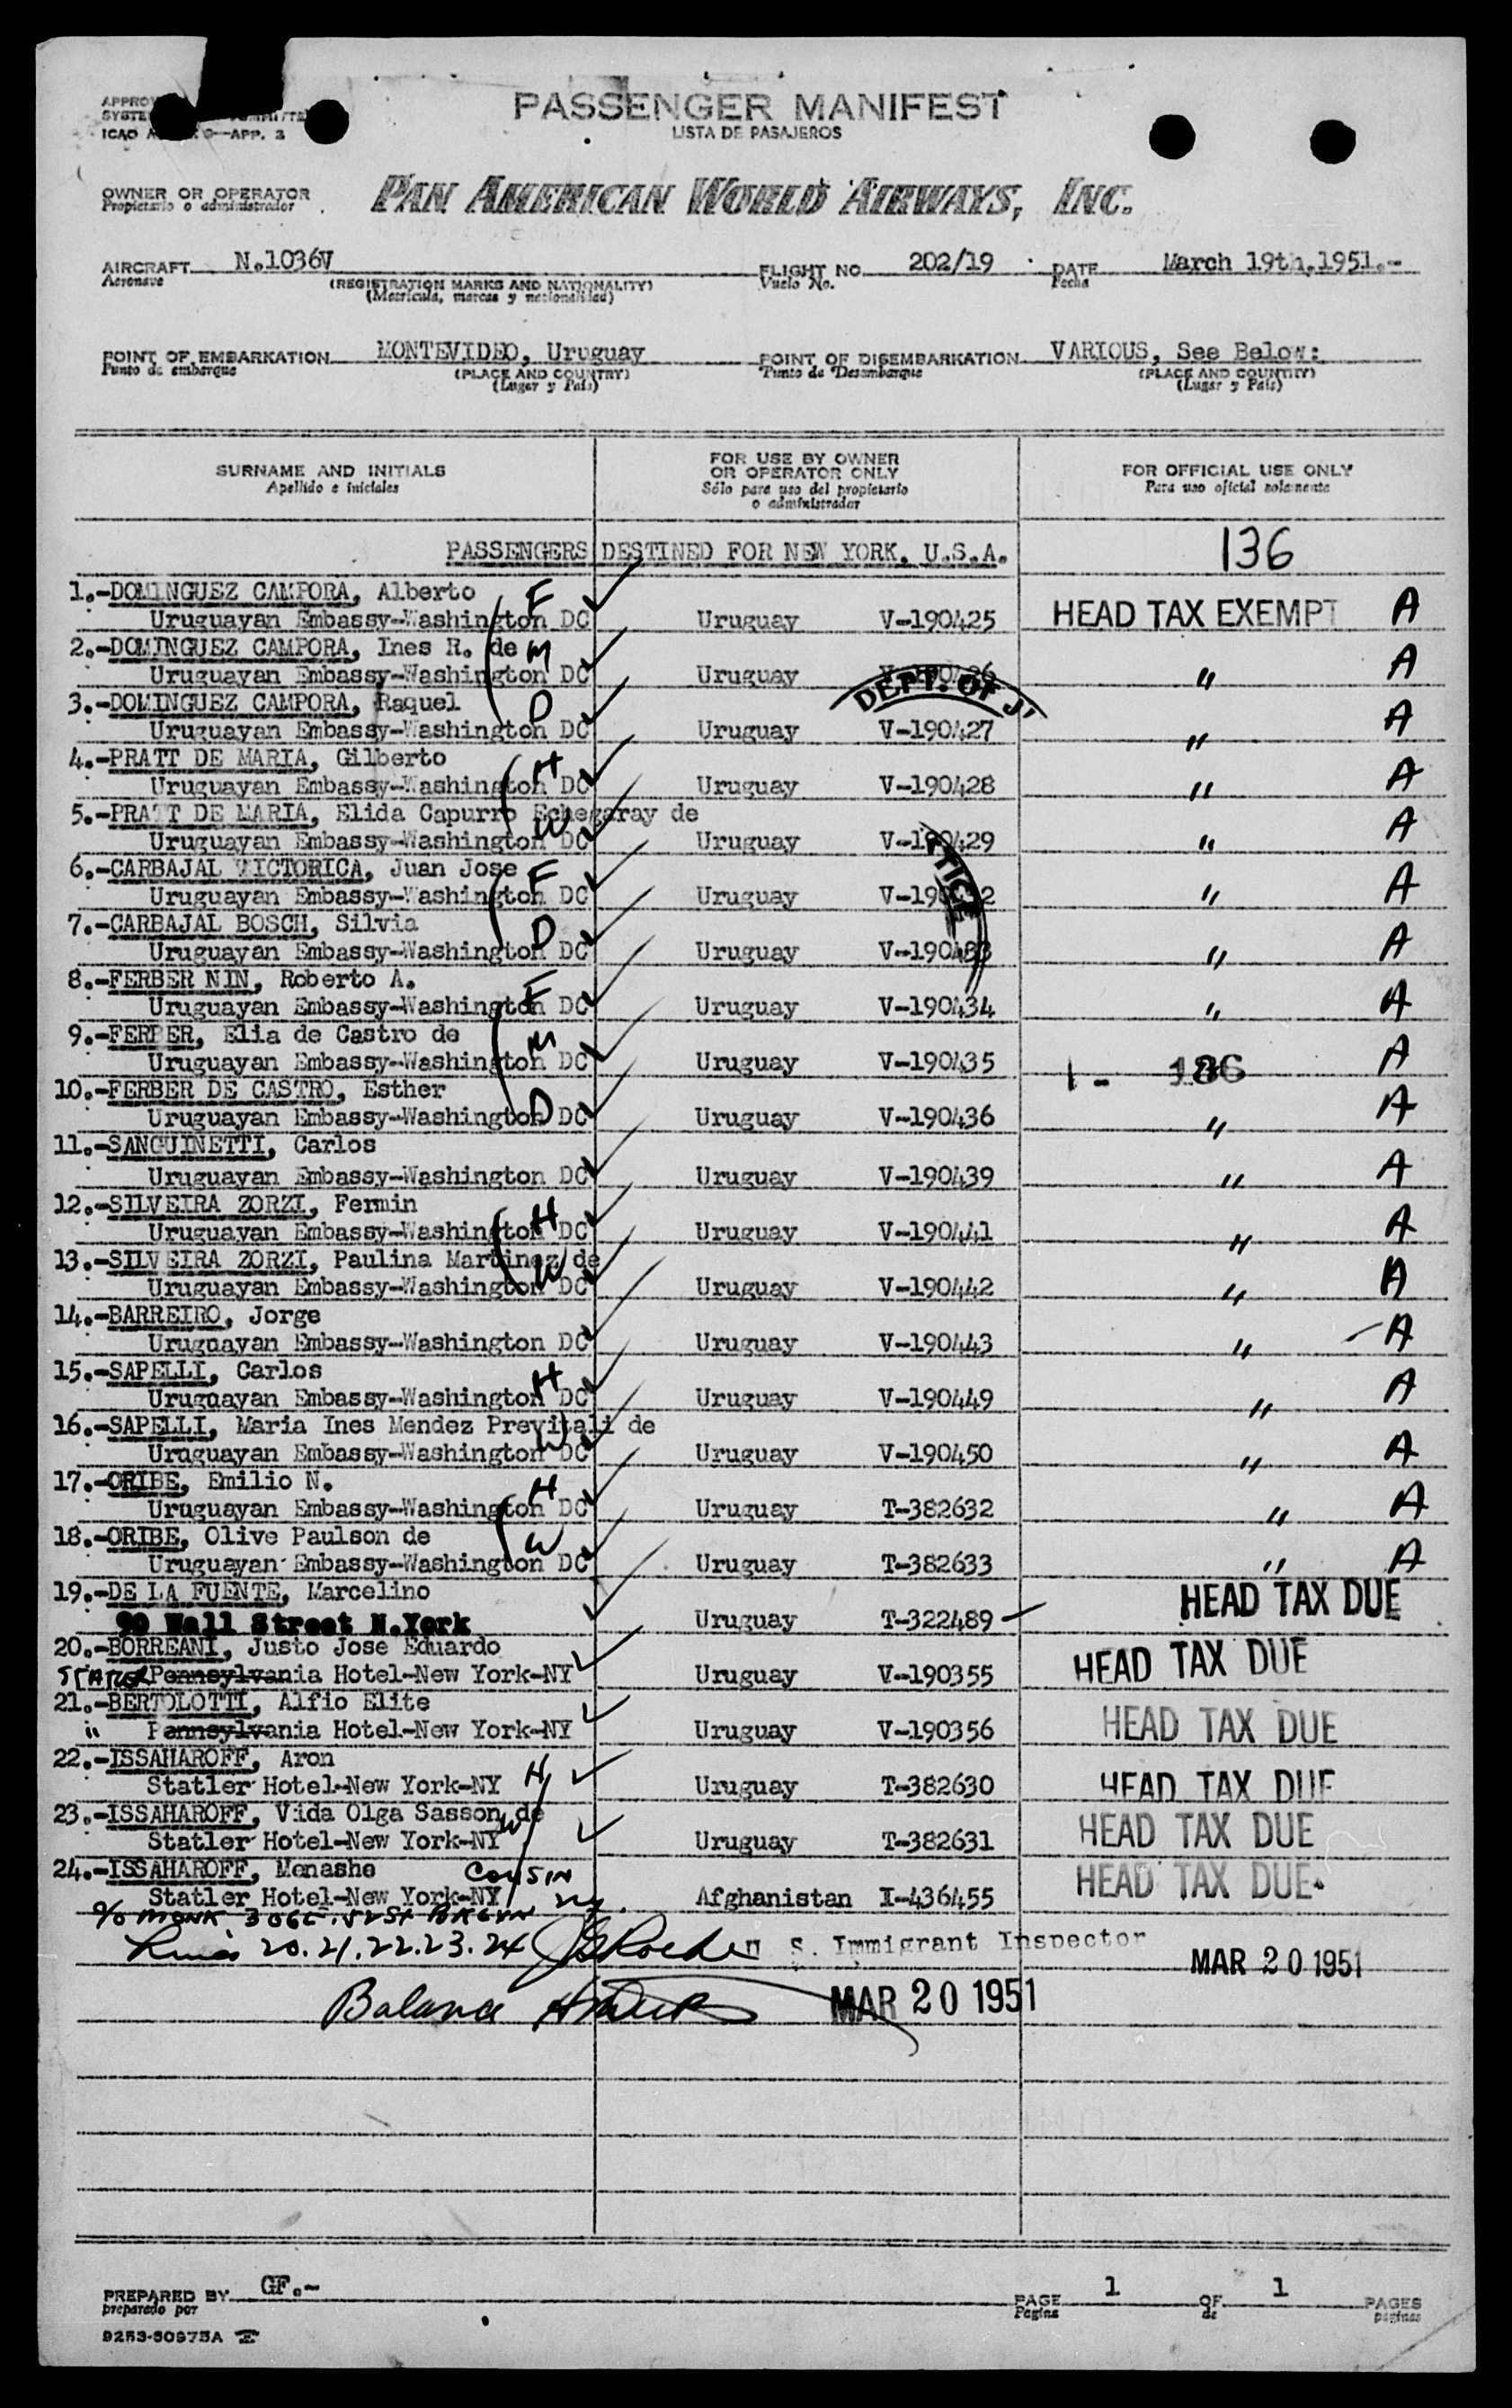 PASSENGER MANIFEST
LISTA DE PASAJEROS
ICAO
—APP. 3
OWNER OR OPERATOR
Propietario o administrador
PAN AMERICAN WORLD AIRWAYS, INC.
AIRCRAFT N.1036V FLIGHT NO. 202/19 DATE March 19th,1951.-
Aeronave (REGISTRATION MARKS AND NATIONALITY) Vuelo No. Fecha
(Matrícula, marcas y nacionalidad)
POINT OF EMBARKATION MONTEVIDEO, Uruguay POINT OF DISEMBARKATION VARIOUS, See Below:
Punto de embarque (PLACE AND COUNTRY) Punto de Desembarque (PLACE AND COUNTRY)
(Lugar y País) (Lugar y País)
SURNAME AND INITIALS
Apellido e iniciales
FOR USE BY OWNER
OR OPERATOR ONLY
Sólo para uso del propietario
o administrador
FOR OFFICIAL USE ONLY
Para uso oficial solamente
PASSENGERS DESTINED FOR NEW YORK, U.S.A. 136
1.-DOMINGUEZ CAMPORA, Alberto F
Uruguayan Embassy-Washington DC Uruguay V-190425 HEAD TAX EXEMPT A
2.-DOMINGUEZ CAMPORA, Ines R. de M
Uruguayan Embassy-Washington DC Uruguay V-190426 " A
DEPT. OF
3.-DOMINGUEZ CAMPORA, Raquel D
Uruguayan Embassy-Washington DC Uruguay V-190427 " A
4.-PRATT DE MARIA, Gilberto H
Uruguayan Embassy-Washington DC Uruguay V-190428 " A
5.-PRATT DE MARIA, Elida Capurro Echegaray de W
Uruguayan Embassy-Washington DC Uruguay V-190429 " A
6.-CARBAJAL VICTORICA, Juan Jose F
Uruguayan Embassy-Washington DC Uruguay " A
7.-CARBAJAL BOSCH, Silvia D
Uruguayan Embassy-Washington DC Uruguay V-190433 " A
8.-FERBER NIN, Roberto A. F
Uruguayan Embassy-Washington DC Uruguay V-190434 " A
9.-FERBER, Elia de Castro de M
Uruguayan Embassy-Washington DC Uruguay V-190435 1 - 186 A
10.-FERBER DE CASTRO, Esther D
Uruguayan Embassy-Washington DC Uruguay V-190436 " A
11.-SANGUINETTI, Carlos
Uruguayan Embassy-Washington DC Uruguay V-190439 " A
12.-SILVEIRA ZORZI, Fermin H
Uruguayan Embassy-Washington DC Uruguay V-190441 " A
13.-SILVEIRA ZORZI, Paulina Martinez de W
Uruguayan Embassy-Washington DC Uruguay V-190442 " A
14.-BARREIRO, Jorge
Uruguayan Embassy-Washington DC Uruguay V-190443 " A
15.-SAPELLI, Carlos H
Uruguayan Embassy-Washington DC Uruguay V-190449 " A
16.-SAPELLI, Maria Ines Mendez Previtali de W
Uruguayan Embassy-Washington DC Uruguay V-190450 " A
17.-ORIBE, Emilio N. H
Uruguayan Embassy-Washington DC Uruguay T-382632 " A
18.-ORIBE, Olive Paulson de W
Uruguayan Embassy-Washington DC Uruguay T-382633 " A
19.-DE LA FUENTE, Marcelino
90 Wall Street N.York Uruguay T-322489 HEAD TAX DUE
20.-BORREANI, Justo Jose Eduardo
Pennsylvania Hotel-New York-NY Uruguay V-190355 HEAD TAX DUE
21.-BERTOLOTTI, Alfio Elite
" Pennsylvania Hotel-New York-NY Uruguay V-190356 HEAD TAX DUE
22.-ISSAHAROFF, Aron H
Statler Hotel-New York-NY Uruguay T-382630 HEAD TAX DUE
23.-ISSAHAROFF, Vida Olga Sasson de W
Statler Hotel-New York-NY Uruguay T-382631 HEAD TAX DUE
24.-ISSAHAROFF, Menashe COUSIN
Statler Hotel-New York-NY Afghanistan I-436455 HEAD TAX DUE.
c/o MONK NY.
20.21.22.23.24 U S. Immigrant Inspector MAR 20 1951
Balance MAR 20 1951
PREPARED BY GF.- PAGE 1 OF 1 PAGES
preparado por Página de páginas
9253-50975A